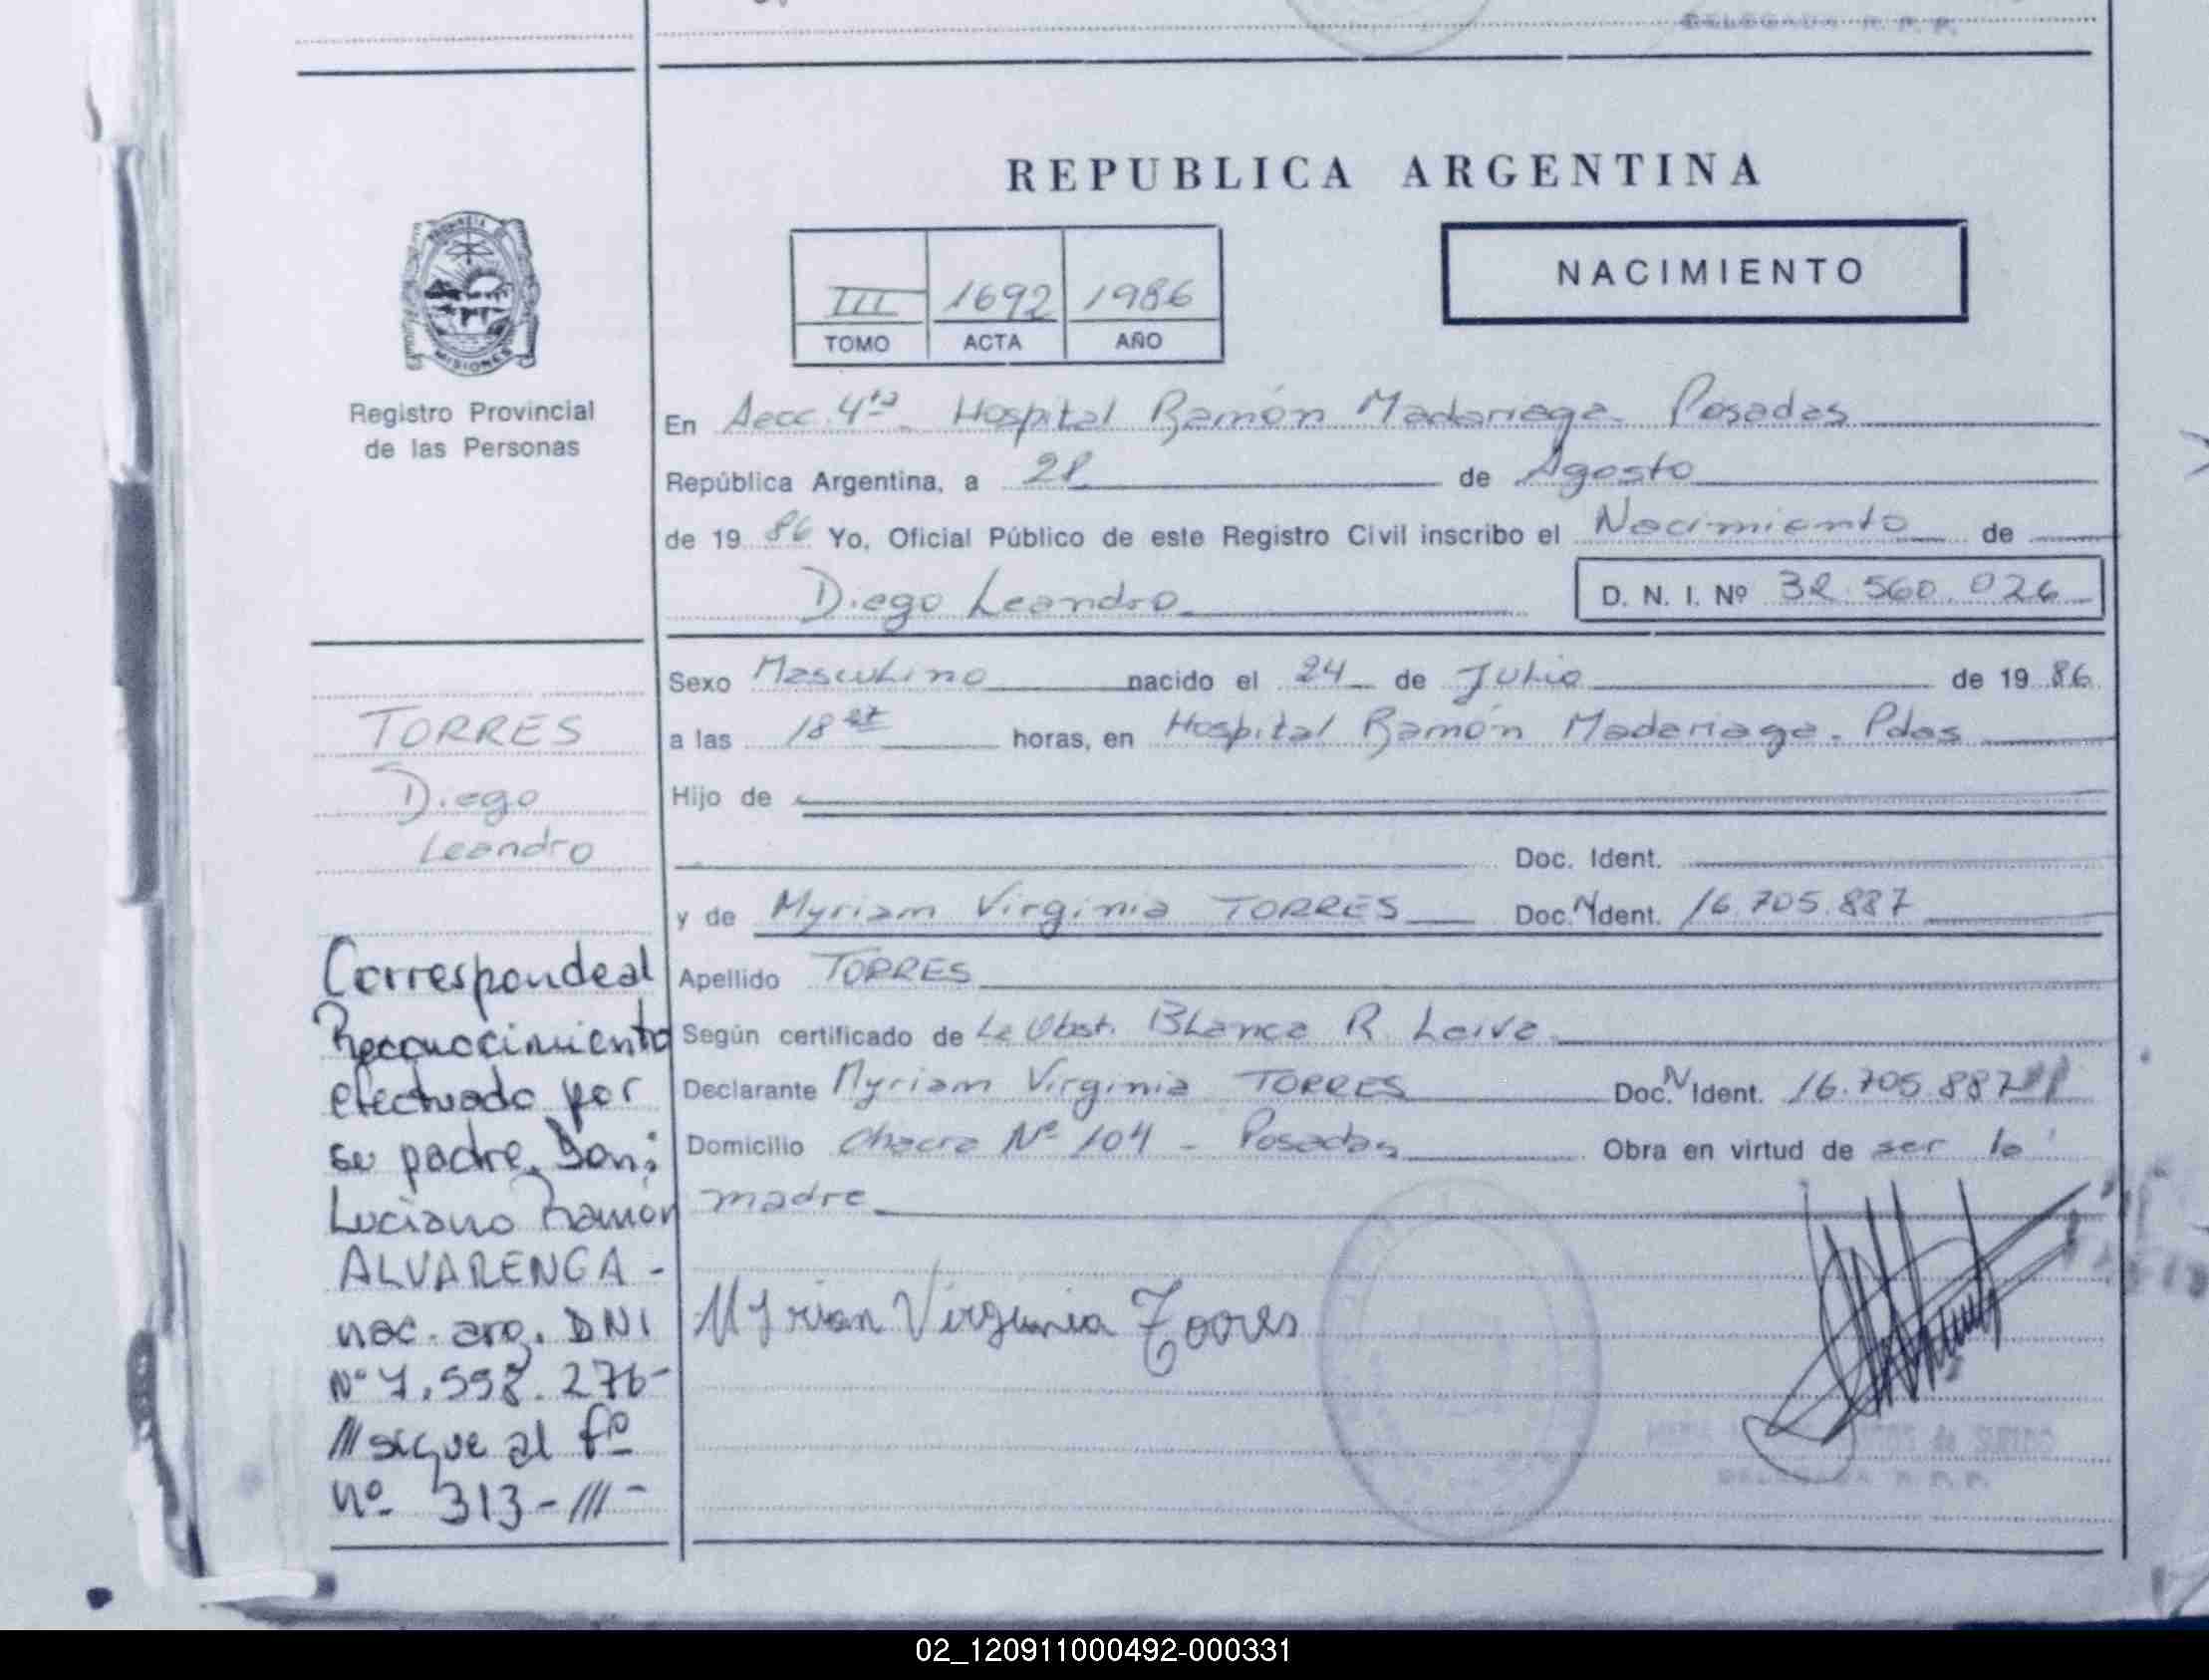 DELEGADA R. P. P.
REPUBLICA ARGENTINA
NACIMIENTO
III 1692 1986
TOMO ACTA AÑO
PROVINCIA DE
MISIONES
Registro Provincial
de las Personas
En Secc. 4ta - Hospital Ramón Madariaga - Posadas
República Argentina, a 28 de Agosto
de 19 86 Yo, Oficial Público de este Registro Civil inscribo el Nacimiento de
Diego Leandro D. N. I. Nº 32.560.026
Sexo Masculino nacido el 24 de Julio de 19 86
a las 18 horas, en Hospital Ramón Madariaga. Pdas
Hijo de
Doc. Ident.
y de Myriam Virginia TORRES Doc. N Ident. 16.705.887
Apellido TORRES
Según certificado de La Obst. Blanca R. Leiva
Declarante Myriam Virginia TORRES Doc. N Ident. 16.705.887
Domicilio Chacra Nº 104 - Posadas Obra en virtud de ser la
madre
Myrian Virginia Torres
DELEGADA R. P. P.
TORRES
Diego
Leandro
Corresponde al
Reconocimiento
efectuado por
su padre, Don:
Luciano Ramón
ALVARENGA -
nac. arg. DNI
Nº 7.558.276-
/// sigue al fº
nº 313-///-
02_120911000492-000331